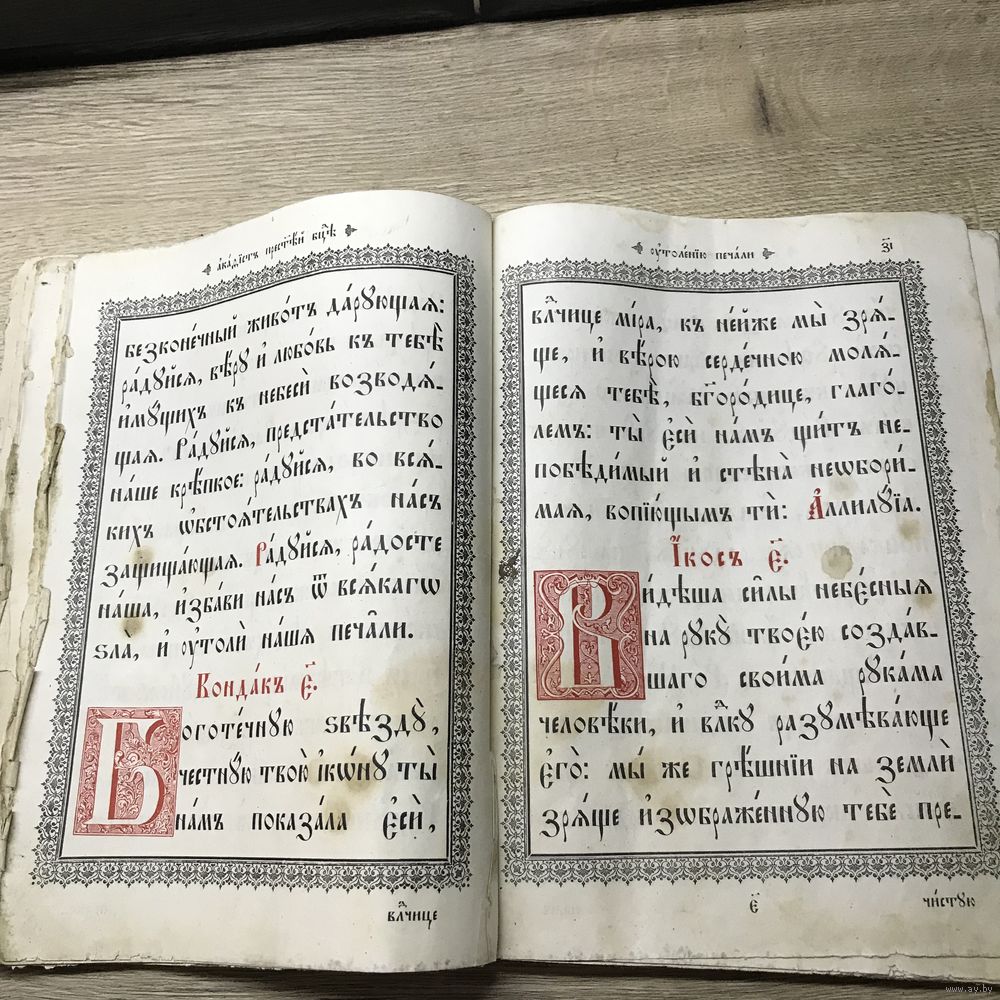 а҆ка́ѳїстъ прест҃ѣ́й бц҃ѣ
безконе́чный живо́тъ да́рꙋющаѧ:
ра́дꙋйсѧ, вѣ́рꙋ и҆ любо́вь къ тебѣ̀
и҆мꙋ́щихъ къ небесѝ возводѧ́-
щаѧ. Ра́дꙋйсѧ, предста́тельство
на́ше крѣ́пкое: ра́дꙋйсѧ, во всѧ́-
кихъ ѡ҆бстоѧ́тельствахъ на́съ
защища́ющаѧ. Ра́дꙋйсѧ, ра́досте
на́ша, и҆зба́ви на́съ ѿ всѧ́кагѡ
ѕла̀, и҆ ᲂу҆толѝ на́шѧ печа̑ли.
Конда́къ є҃.
Боготе́чнꙋю ѕвѣздꙋ̀,
честнꙋ́ю твою̀ і҆кѡ́нꙋ ты̀
на́мъ показа́ла є҆сѝ,
влⷣчице
ᲂу҆толе́нїю печа́ли
з҃і
влⷣчице мі́ра, къ не́йже мы̀ зрѧ́-
ще, и҆ вѣ́рою серде́чною молѧ́-
щесѧ тебѣ̀, бг҃оро́дице, глаго́-
лемъ: ты̀ є҆сѝ на́мъ щи́тъ не-
побѣди́мый и҆ стѣна̀ неѡбори́-
маѧ, вопїю́щымъ тѝ: А҆ллилꙋ́їа.
І҆́косъ є҃.
Ви́дѣша си̑лы небє́сныѧ
на рꙋкꙋ̀ твоє́ю созда́в-
шаго свои́ма рꙋка́ма
человѣ́ки, и҆ влⷣкꙋ разꙋмѣва́юще
є҆го̀: мы́ же грѣ́шнїи на землѝ
зрѧ́ще и҆зѡбраже́ннꙋю тебѐ пре-
є҃
чи́стꙋю
www.ay.by